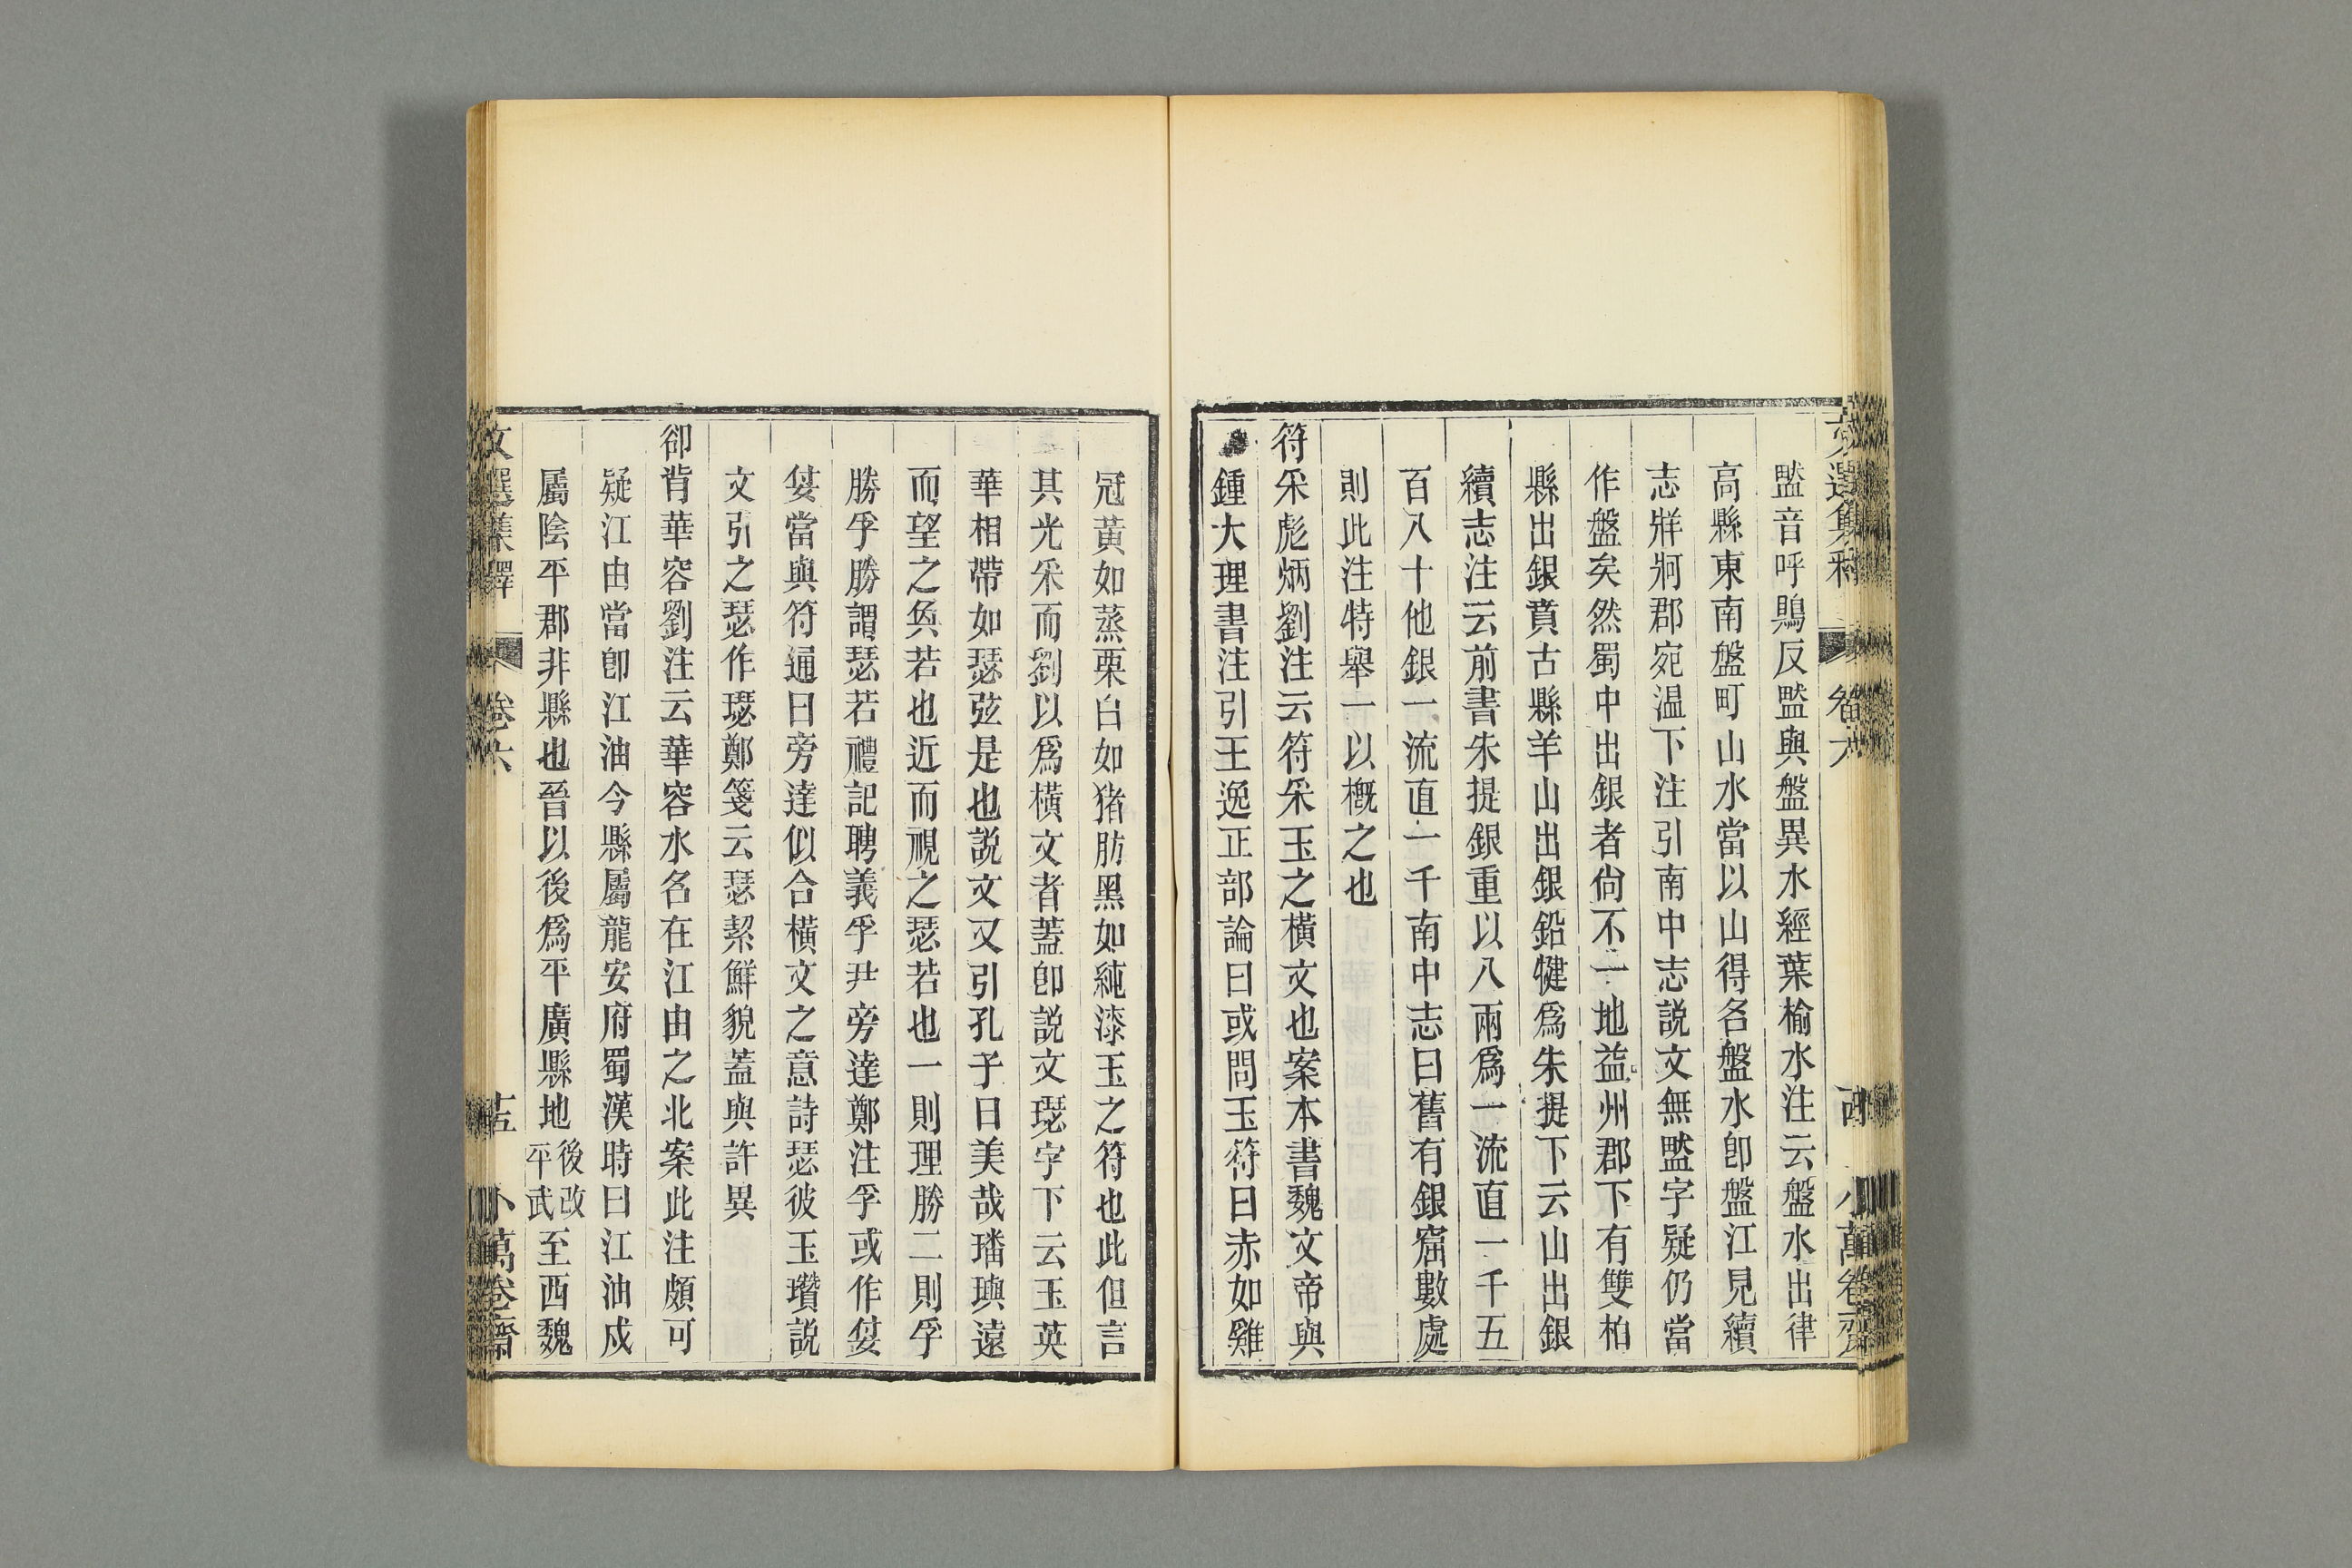 盢音呼鵙反盢與盤異水經葉榆水注云盤水出律
高縣東南盤町山水當以山得名盤水卽盤江見續
志牂牁郡宛温下注引南中志説文無盢字疑仍當
作盤矣然蜀中出銀者尙不一地益州郡下有雙柏
縣出銀賁古縣羊山出銀鉛犍爲朱提下云山出銀
續志注云前書朱提銀重以八兩爲一流直一千五
百八十他銀一流直一千南中志曰舊有銀窟數處
則此注特舉一以槪之也
符采彪炳劉注云符采玉之橫文也案本書魏文帝與
鍾大理書注引王逸正部論曰或問玉符曰赤如雞
冠黃如蒸栗白如猪肪黑如純漆玉之符也此但言
其光采而劉以爲橫文者蓋卽説文瑟字下云玉英
華相帶如瑟弦是也説文又引孔子曰美哉璠璵遠
而望之奐若也近而視之瑟若也一則理勝二則孚
勝孚勝謂瑟若禮記聘義孚尹旁達鄭注孚或作姇
姇當與符通曰旁達似合橫文之意詩瑟彼玉瓚説
文引之瑟作璱鄭箋云瑟絜鮮貌蓋與許異
卻背華容劉注云華容水名在江由之北案此注頗可
疑江由當卽江油今縣屬龍安府蜀漢時曰江油戍
屬陰平郡非縣也晉以後爲平廣縣地後改平武至西魏
文選集釋
卷六
小萬卷齋